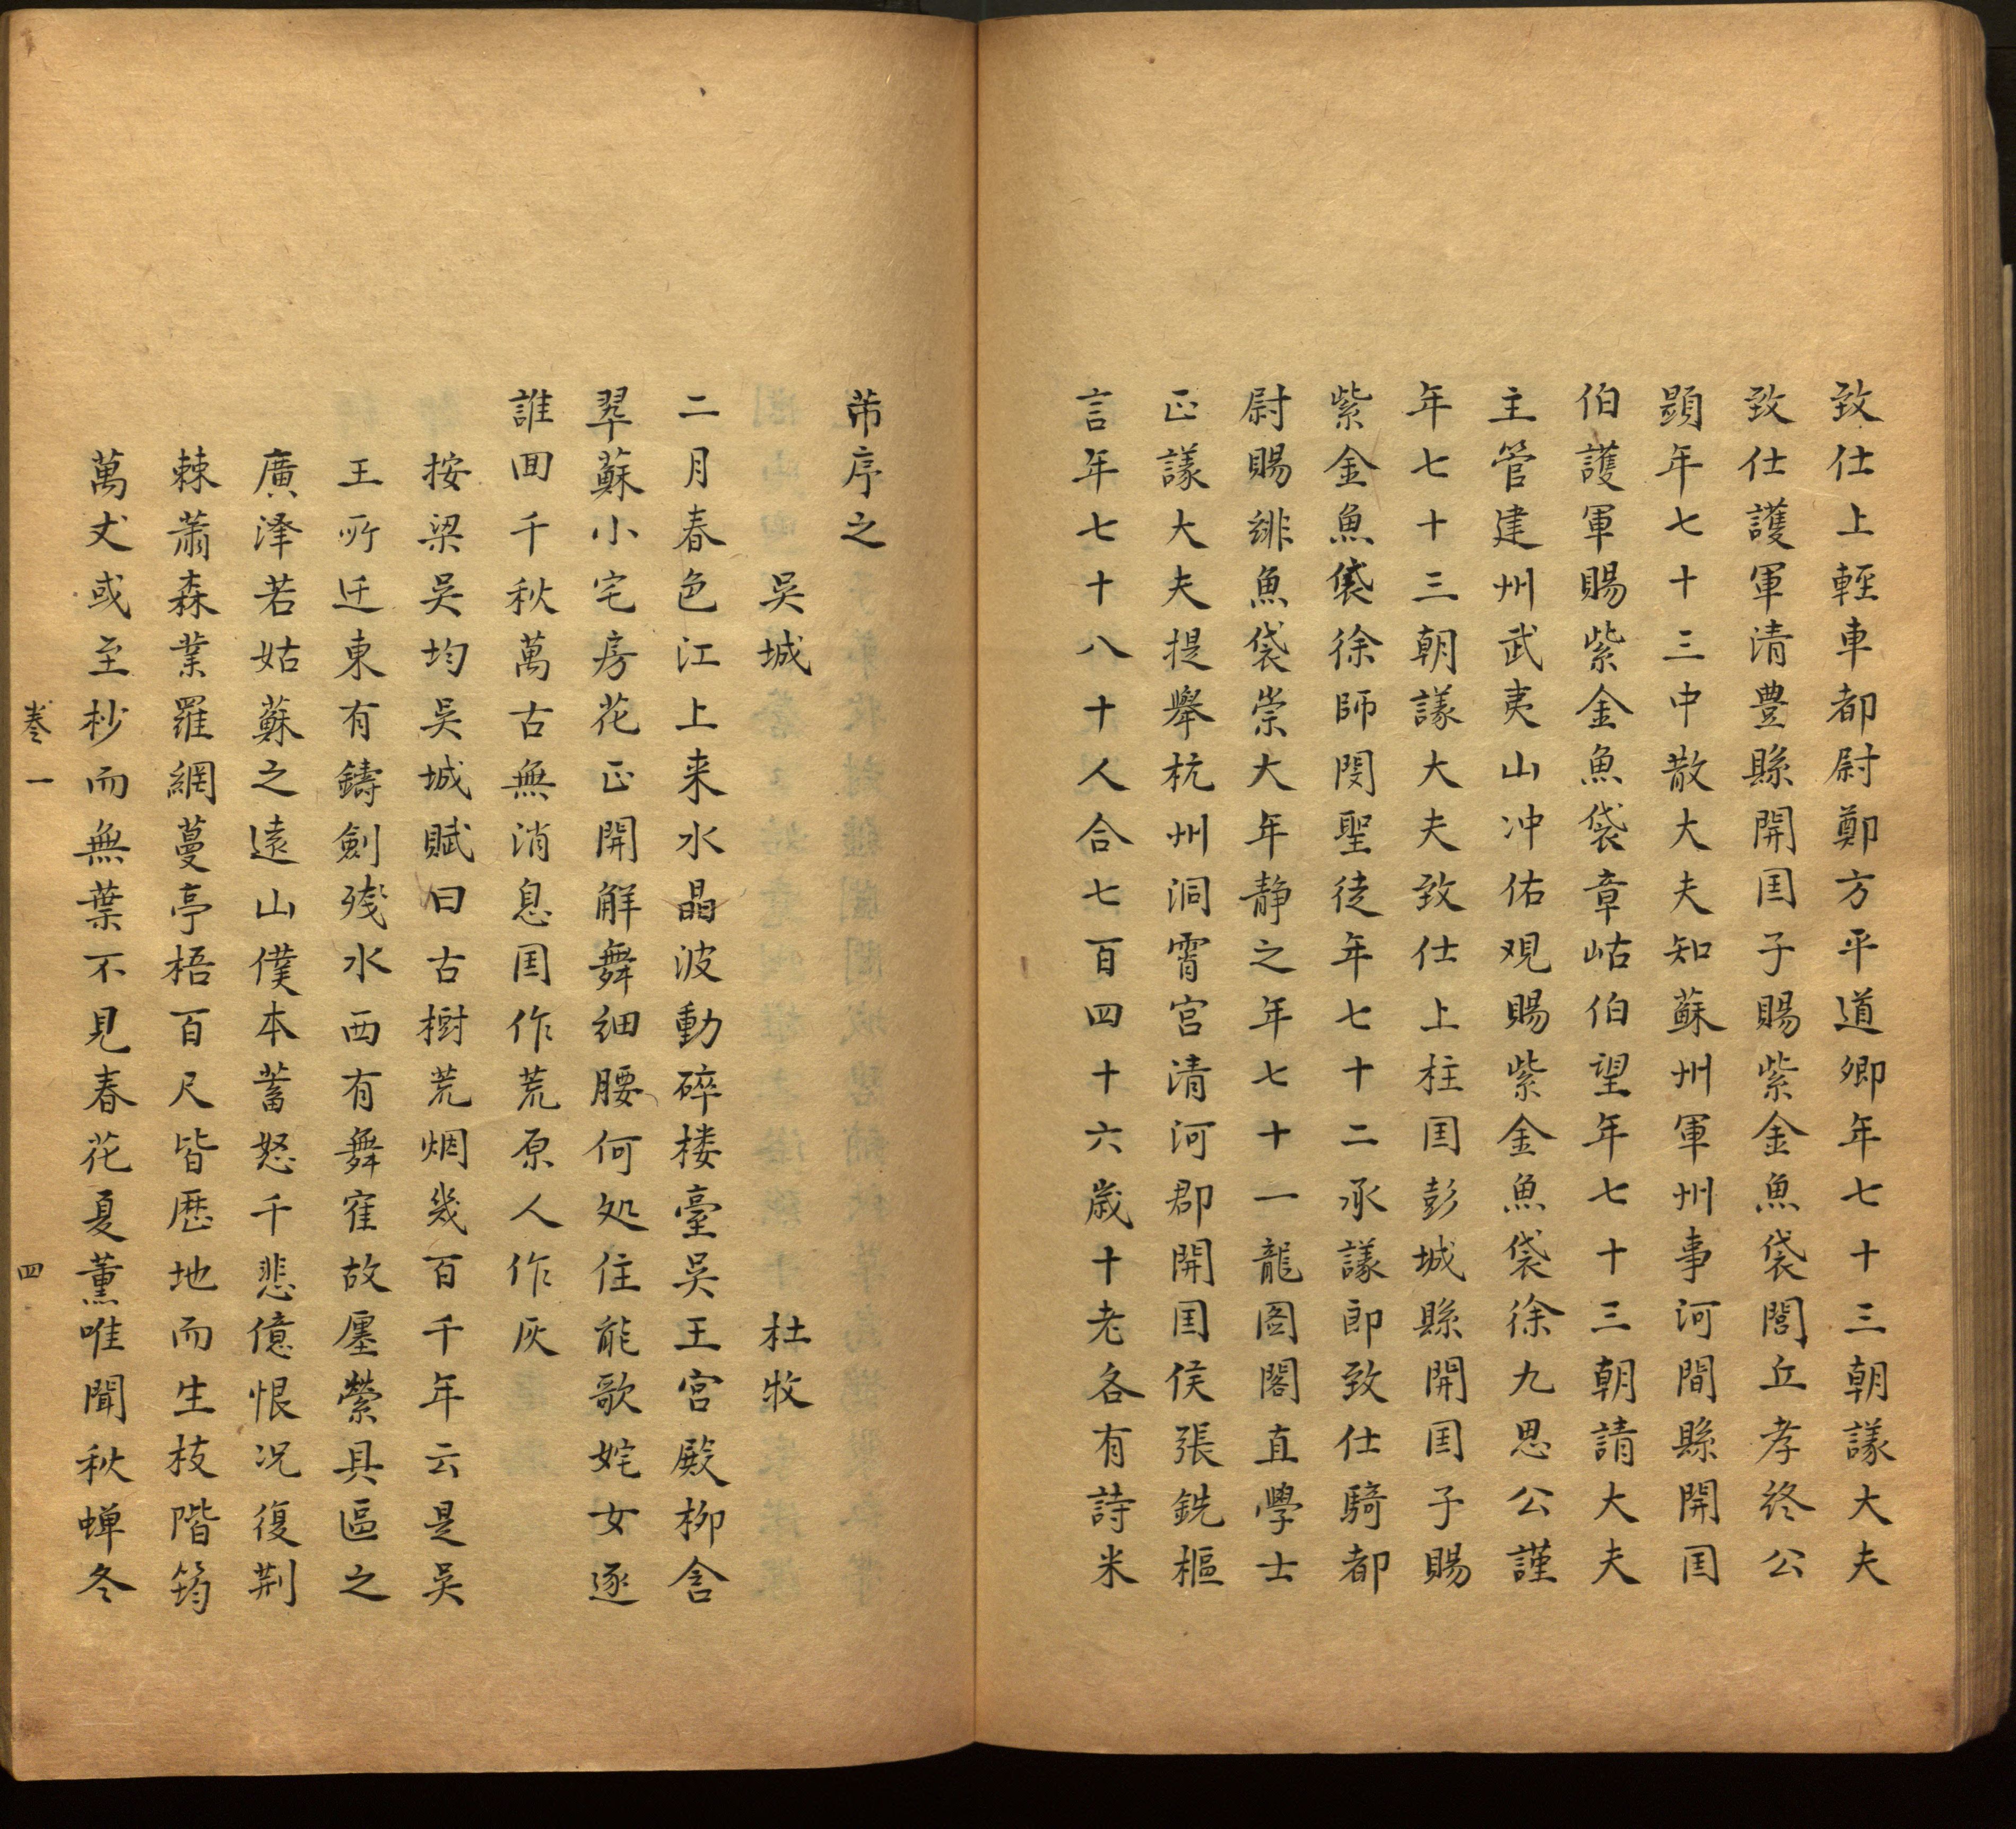 致仕上輕車都尉鄭方平道卿年七十三朝議大夫
致仕護軍清豊縣開囯子賜紫金魚袋閭丘孝終公
顕年七十三中散大夫知蘇州軍州事河間縣開囯
伯護軍賜紫金魚袋章岵伯望年七十三朝請大夫
主管建州武夷山冲佑观賜紫金魚袋徐九思公謹
年七十三朝議大夫致仕上柱囯彭城縣開囯子賜
紫金魚袋徐師閔聖徒年七十二承議郎致仕騎都
尉賜緋魚袋崇大年静之年七十一龍圖閣直學士
正議大夫提舉杭州洞霄宮清河郡開囯侯張銑樞
言年七十八十人合七百四十六歲十老各有詩米
芾序之
吳城　杜牧
二月春色江上来水晶波動碎楼臺吳王宮殿柳含
翠蘇小宅房花正開解舞细腰何処住能歌姹女逐
誰回千秋萬古無消息囯作荒原人作灰
按梁吳均吳城賦曰古樹荒烟幾百千年云是吳
王所迁東有鑄劍殘水西有舞隺故廛縈具區之
廣泽若姑蘇之遠山僕本蓄怒千悲億恨况復荆
棘蕭森業羅網蔓亭梧百尺皆歴地而生枝階筠
萬丈或至杪而無葉不見春花夏薫唯聞秋蝉冬
卷一
四